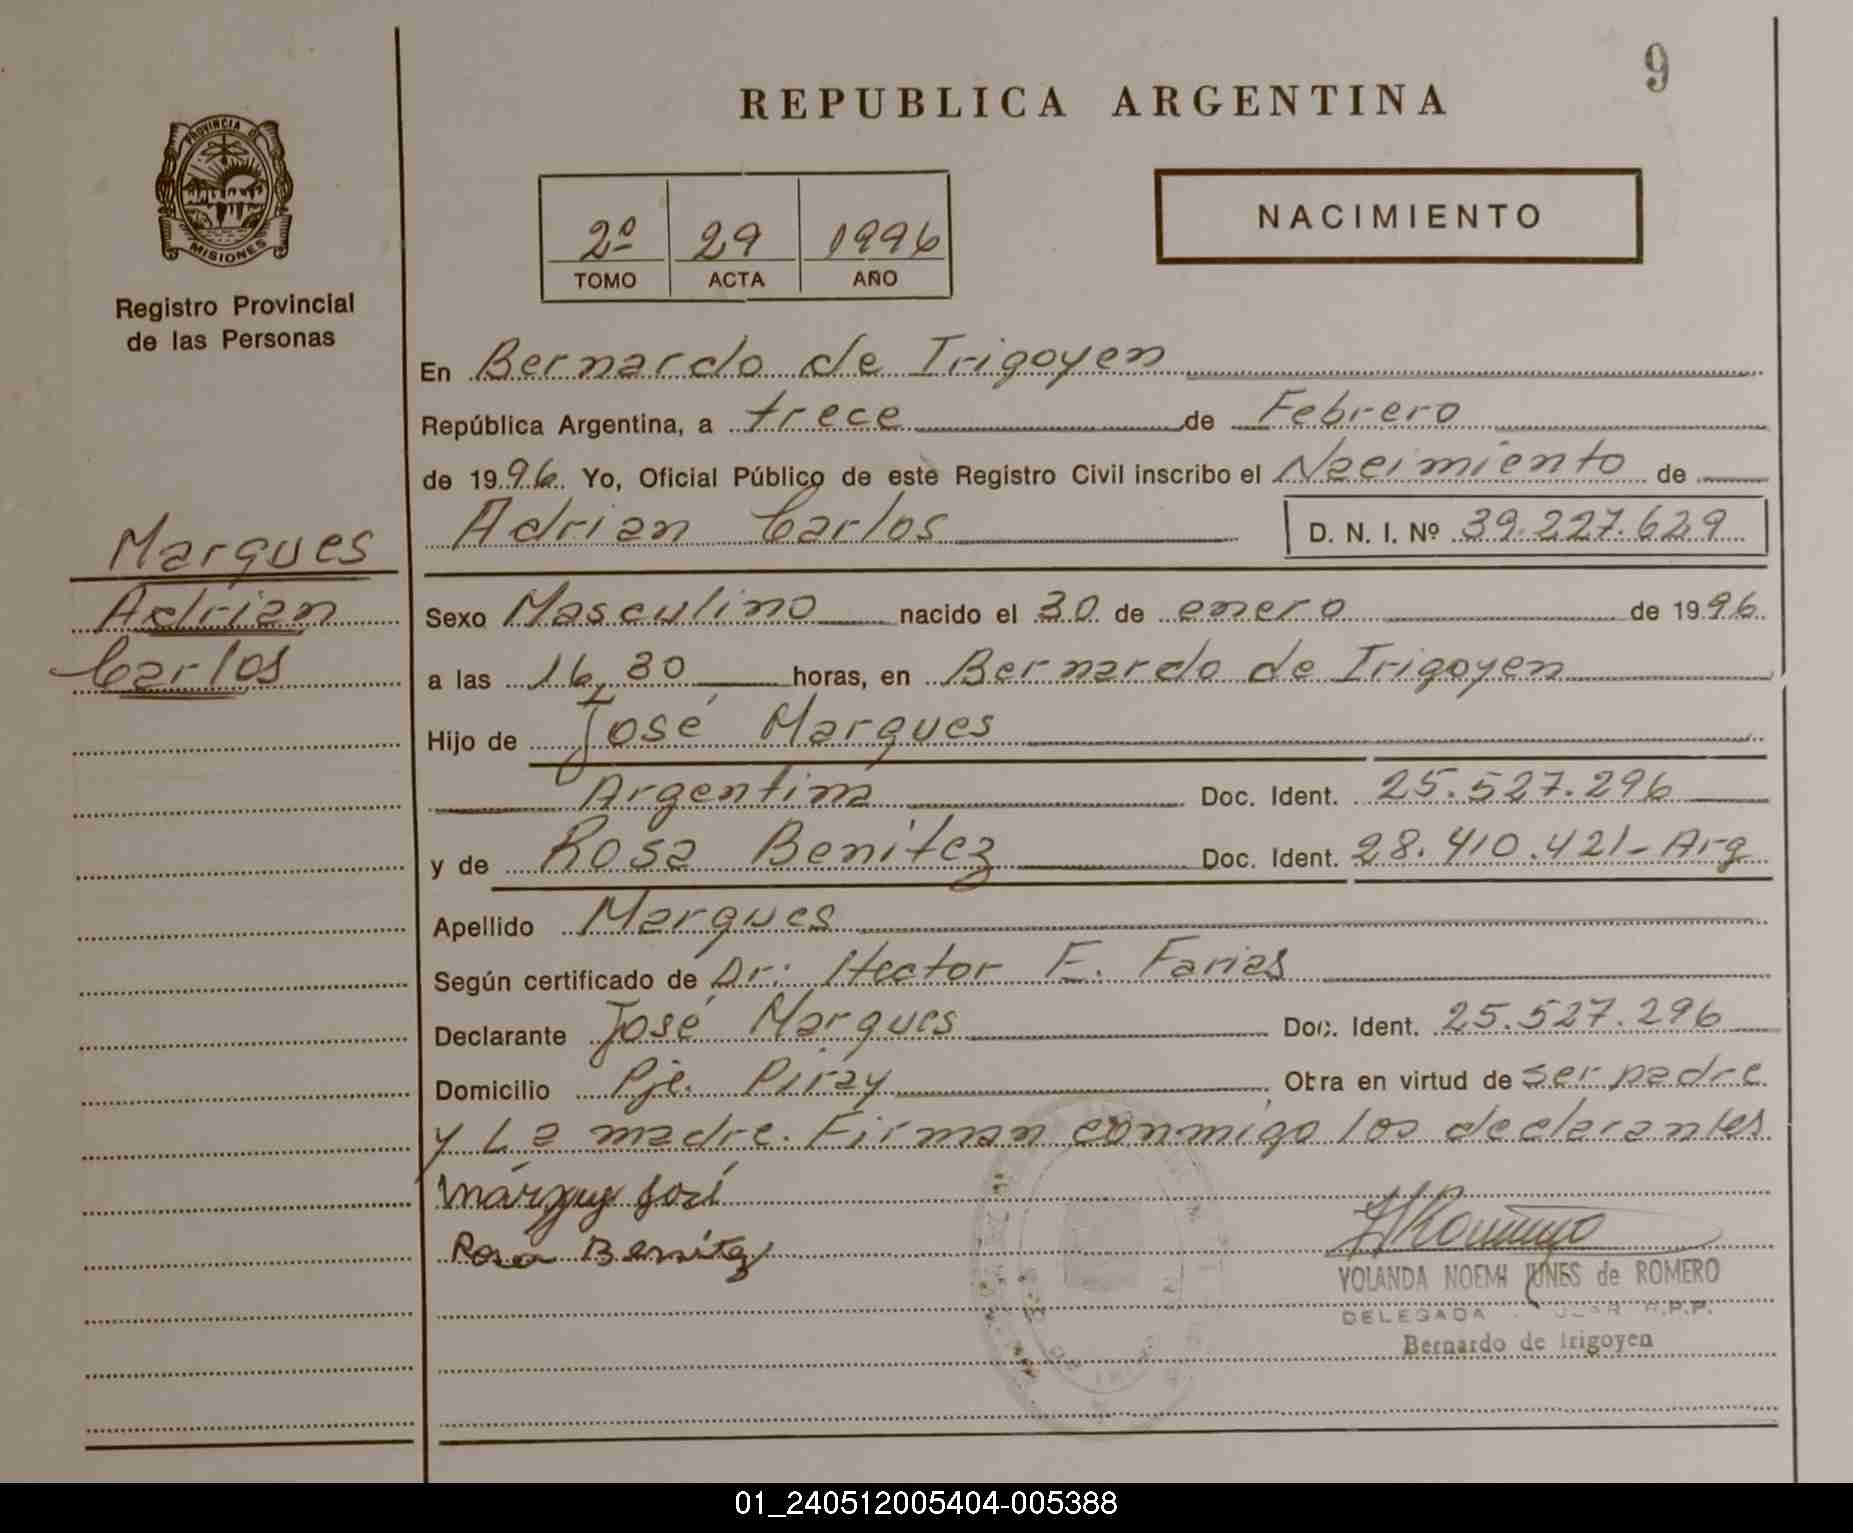 9
REPUBLICA ARGENTINA
PROVINCIA DE
MISIONES
Registro Provincial
de las Personas
2º 29 1996
TOMO ACTA AÑO
NACIMIENTO
En Bernardo de Irigoyen
República Argentina, a trece de Febrero
de 1996 Yo, Oficial Público de este Registro Civil inscribo el Nacimiento de
Adrian Carlos D. N. I. Nº 39.227.629
Marques
Adrian
Carlos
Sexo Masculino nacido el 30 de enero de 1996
a las 16,30 horas, en Bernardo de Irigoyen
Hijo de José Marques
Argentina Doc. Ident. 25.527.296
y de Rosa Benitez Doc. Ident. 28.410.421- Arg
Apellido Marques
Según certificado de Dr: Hector E. Farias
Declarante José Marques Doc. Ident. 25.527.296
Domicilio Pje. Piray Obra en virtud de ser padre
y La madre. Firman conmigo los declarantes
José
Rosa Benítez
YOLANDA NOEMI de ROMERO
DELEGADA R.P.P.
Bernardo de Irigoyen
01_240512005404-005388